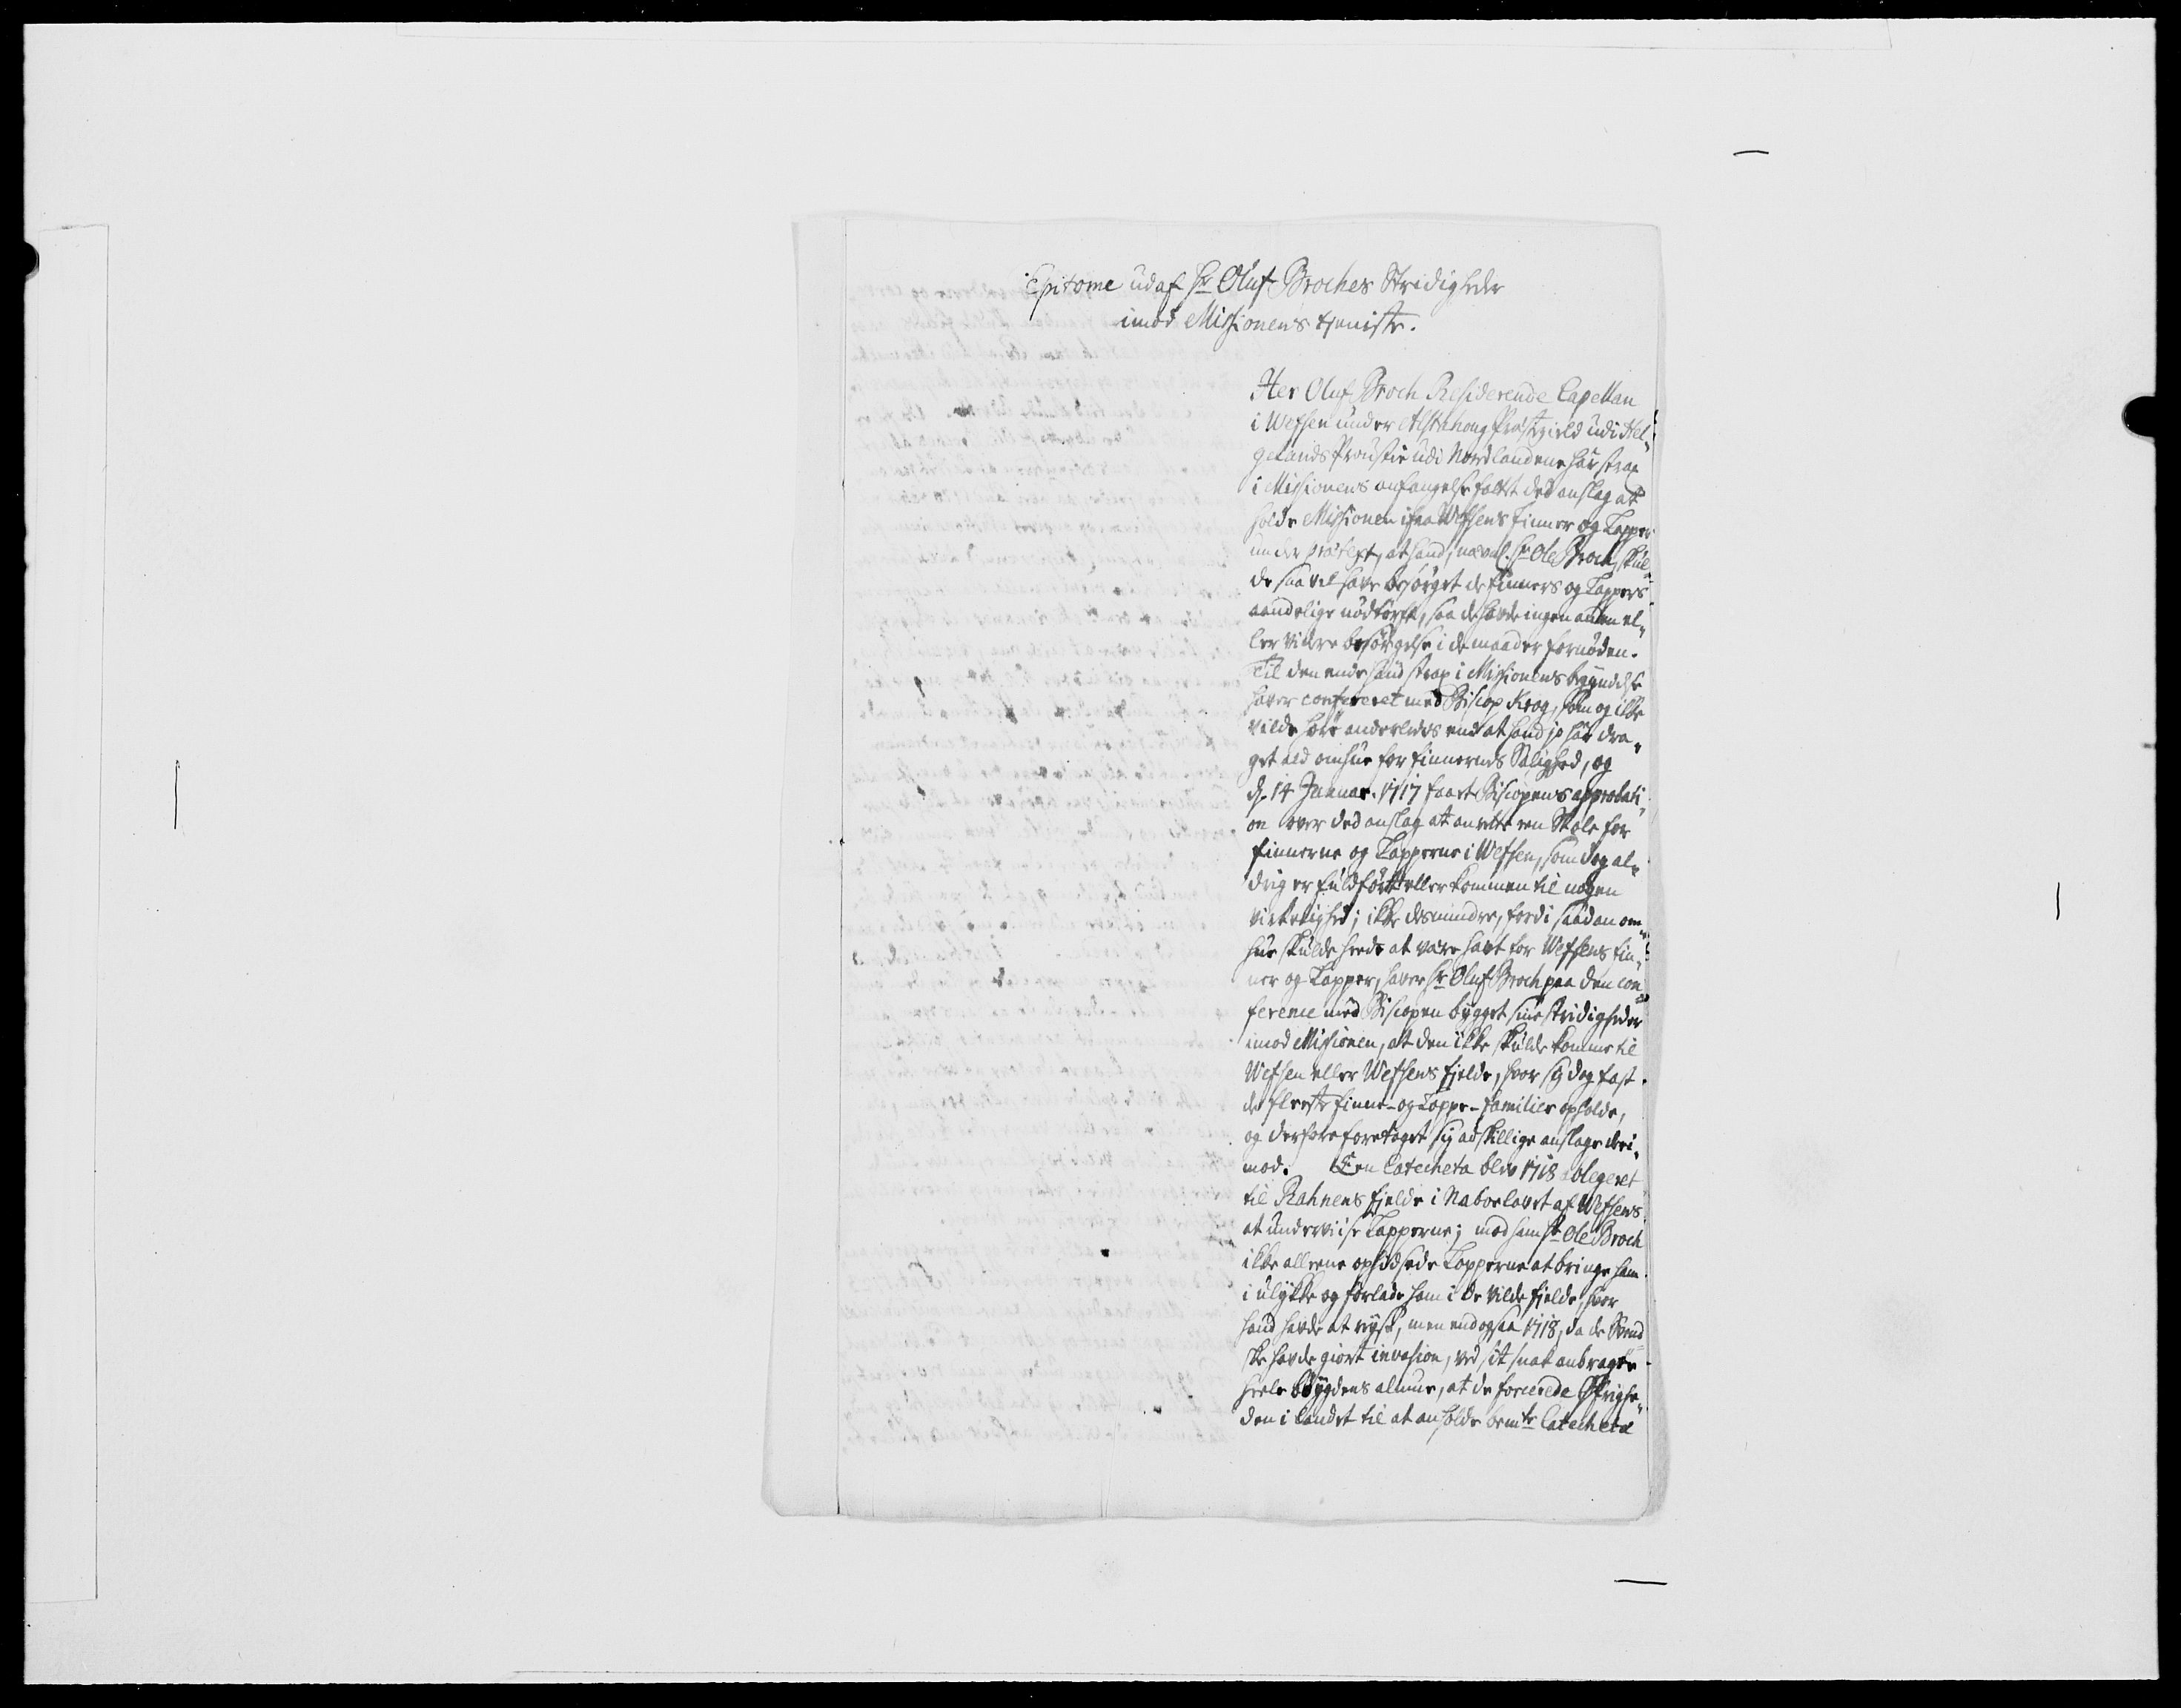 Epitome ud af Hr Oluf Broches Stridigheder
imod Missionens tjeniste.
Her Oluf Broch Residerende Capellan
i Wefsen under Alstahoug Præstegield udi Hel-
gelands Proustie udi Nordlandene har strax
i Missionens anfangelse fattet det anslag at
holde Missionen ifra Wefsens Finner og Lapper
under prætext, at hand, nævnl. Hr Ole Broch, skul-
de saa vel have besørget de Finners og Lappers
aandelige nødtørft, saa de havde ingen anden el-
ler videre besørgelse i de maader fornøden.
Til den ende hand strax i Missionens begyndelse
haver confereret med Biscop Krog, som og ikke
vilde høre anderledes end at hand jo har dra-
get ald omhue for Finnernes Salighed, og
d. 14 Januar. 1717 faaet Biscopens approbati-
on over det anslag at anrette een Skole for
Finnerne og Lapperne i Wefsen, som dog al-
drig er fuldført eller kommen til nogen
virkelighed; ikke desmindre, fordi saadan om-
hue skulde heede at være havt for Wefsens Fin-
ner og Lapper, haver Hr Oluf Broch paa den con-
ference med Biscopen bygget sine stridigheder
imod Missionen, at den ikke skulde komme til
Wefsen eller Wefsens fjelde, hvor sig dog fast
de fleeste Finne- og Lappe-familier opholde,
og derfore foretaget sig adskillige anslage deri-
mod. Een Catecheta blev 1718 delegeret
til Rahnens fjelde i Naboelavet af Wefsens
at underviise Lapperne; mod ham Hr Ole Broch
ikke alleene ophidsede Lapperne at bringe ham
i ulykke og forlade ham i de vilde fjelde, hvor
hand havde at reyse, men end ogsaa 1718, da de Svend-
ske havde giort invasion, ved sit snak anbragte
heele bøygdens almue, at de forcerede Øfrighe-
den i landet til at anholde bemte Catecheta